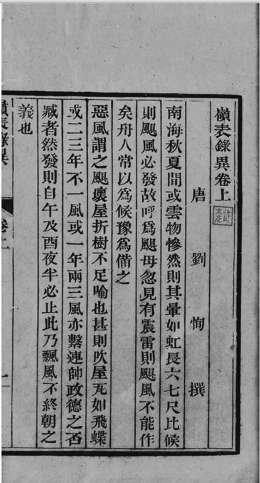 嶺表錄異卷上
唐 劉恂 撰
南海秋夏間或雲物慘然則其暈如虹長六七尺比候
則颶風必發故呼爲颶母忽見有震雷則颶風不能作
矣舟人常以爲候豫爲備之
惡風謂之颶壞屋折樹不足喻也甚則吹屋瓦如飛蝶
或二三年不一風或一年兩三風亦繫連帥政德之否
臧者然發則自午及酉夜半必止此乃飄風不終朝之
義也
嶺表錄異
卷上
一